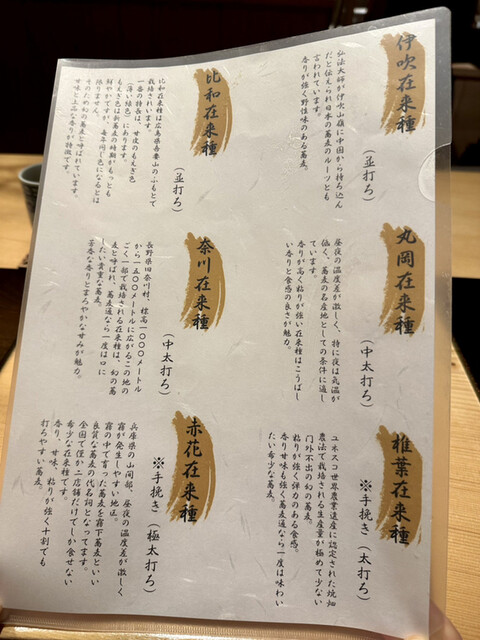 伊吹在来種
(並打ち)
弘法大師が伊吹山嶺に中国から持ち込ん
だと伝えられ日本の蕎麦のルーツとも
言われています。
香りが強く野性味のある蕎麦。
比和在来種
(並打ち)
比和在来種は広島県吾妻山のふもとで
栽培されています。
一番の特長は、甘皮のもえぎ色
(薄い緑色)にあります。
もえぎ色は新蕎麦の時期がもっとも
鮮やかですが、毎年同じ色になるとは
限りません。
そのため幻の蕎麦と呼ばれています。
甘味と上品な香りが特徴です。
丸岡在来種
(中太打ち)
昼夜の温度差が激しく、特に夜は気温が
低く、蕎麦の名産地としての条件に適し
ています。
香りが高く粘りが強い在来種はこうばし
い香りと食感の良さが魅力。
奈川在来種
(中太打ち)
長野県旧奈川村、標高1000メートル
から1500メートルに広がるこの地の
ごく一部で栽培される在来種は、幻の蕎
麦と呼ばれ、蕎麦通なら一度は口に
したい貴重な蕎麦。
芳香な香りとまろやかな甘みが魅力。
椎葉在来種
※手挽き(太打ち)
ユネスコ世界農業遺産に認定された焼畑
農法で栽培される生産量が極めて少ない
門外不出の幻の蕎麦。
粘りが強く弾力のある食感。
香り甘味も強く蕎麦通なら一度は味わい
たい希少な蕎麦。
赤花在来種
※手挽き(極太打ち)
兵庫県の山間部、昼夜の温度差が激しく
霧が発生しやすい地区。
霧の中で育った蕎麦を霧下蕎麦といい
良質な蕎麦の代名詞となってます。
全国で僅か二店舗だけでしか食せない
希少な在来種です。
香り、甘味、粘りが強く十割でも
打ちやすい蕎麦。